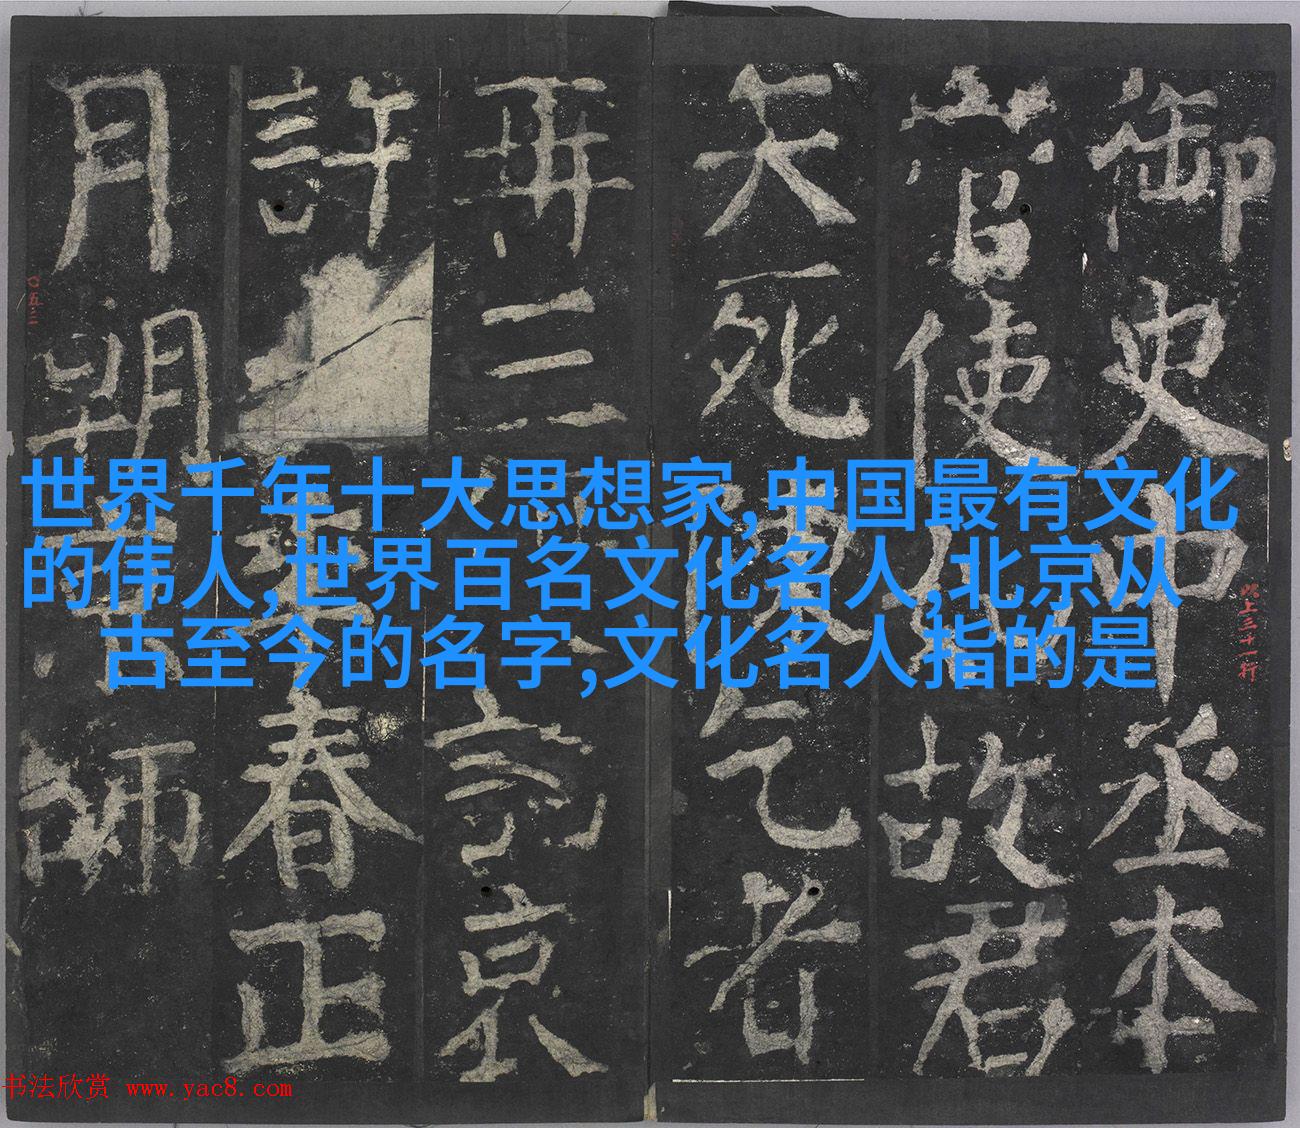 御史中丞本
使故君
死乞者
再三京
許春正
月朔師
此上三十一行
〇五三
世界千年十大思想家,中国最有文化
的伟人,世界百名文化名人,北京从
古至今的名字,文化名人指的是
书法欣赏 www.yac8.com